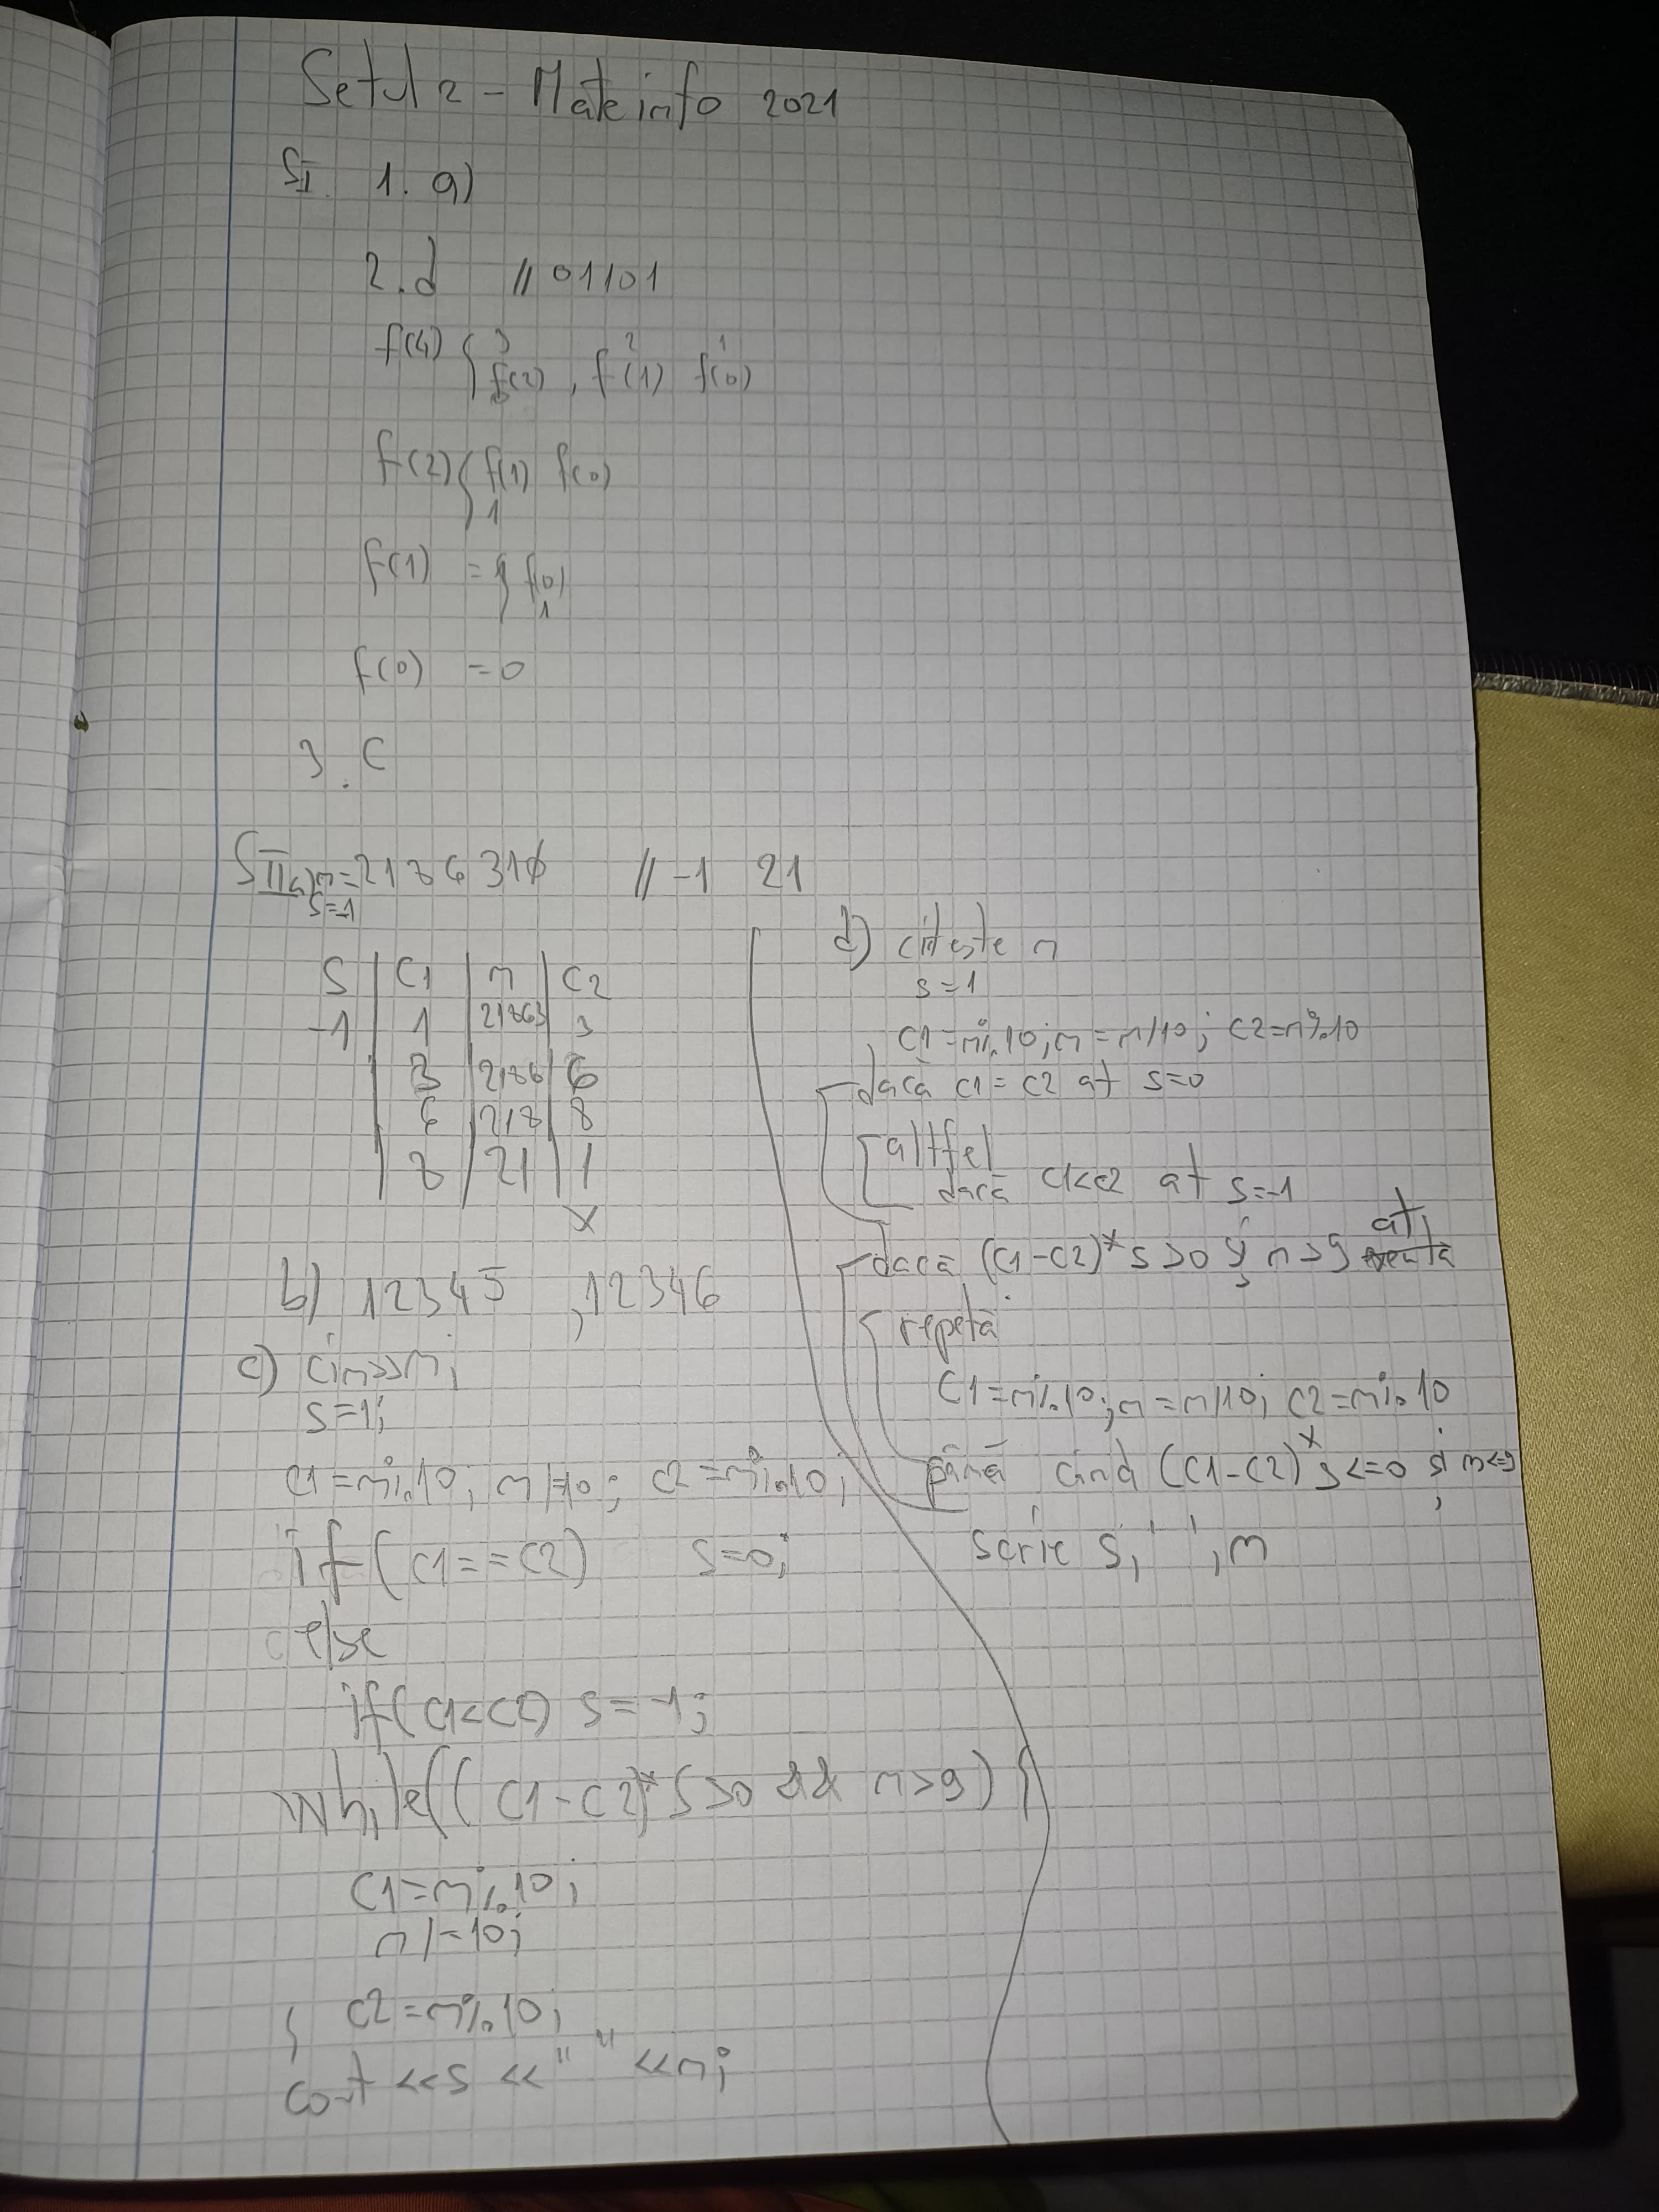 Setul 2 - Mateinfo 2021
SI. 1. a)
2.d // 01101
3 2 1
f(4) { f(2), f(1) f(0)
f(2) { f(1) f(0)
1
f(1) = { f(0)
1
f(0) = 0
3. C
SII a) n=21863 // -1 21
s=-1
S | C1 | n | C2
-1 | 1 | 21863 | 3
3 | 2186 | 6
6 | 218 | 8
8 | 21 | 1
x
b) 12345, 12346
c) cin>>n;
s=1;
c1=n%10; n/=10; c2=n%10;
if(c1==c2) s=0;
else
if(c1<c2) s=-1;
while((c1-c2)*s>0 && n>9) {
c1=n%10;
n/=10;
c2=n%10;
}
cout<<s<<" "<<n;
d) citeste n
s=1
c1=n%10; n=n/10; c2=n%10
dacă c1=c2 at s=0
altfel
dacă c1<c2 at s=-1
dacă (c1-c2)*s>0 și n>9 at
repetă
c1=n%10; n=n/10; c2=n%10
până când (c1-c2)*s<=0 și n<=9
scrie s,' ',n